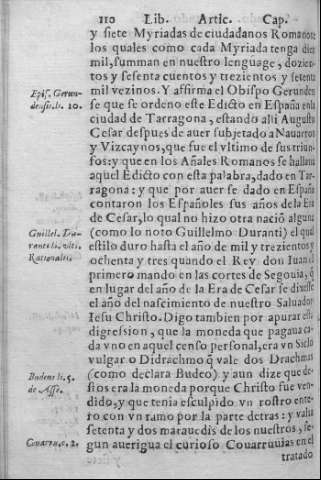 110 Lib. Artic. Cap.
y siete Myriadas de ciudadanos Romanos:
los quales como cada Myriada tenga diez
mil, summan en nuestro lenguage, dozien-
tos y sesenta cuentos y trezientos y setenta
mil vezinos. Y affirma el Obispo Gerunden
Epis. Gerun-
densis. li. 10.
se que se ordeno este Edicto en España en la
ciudad de Tarragona, estando alli Augusto
Cesar despues de auer subjetado a Nauarros
y Vizcaynos, que fue el vltimo de sus triun-
fos: y que en los Añales Romanos se hallaua
aquel Edicto con esta palabra, dado en Tar-
ragona: y que por auer se dado en España
contaron los Españoles sus años de la Era
de Cesar, lo qual no hizo otra nació alguna
Guillel. Du-
ranti li. vlti.
Rationalis.
(como lo noto Guillelmo Duranti) el qual
estilo duro hasta el año de mil y trezientos y
ochenta y tres quando el Rey don Iuan el
primero mando en las cortes de Segouia, q̃
en lugar del año de la Era de Cesar se dixesse
el año del nascimiento de nuestro Saluador
Iesu Christo. Digo tambien por apurar esta
digression, que la moneda que pagaua ca-
da vno en aquel censo personal, era vn Siclo
vulgar o Didrachmo q̃ vale dos Drachmas
Budeus li. 5.
de Asse.
(como declara Budeo) y aun dize que de-
stos era la moneda porque Christo fue ven-
dido, y que tenia esculpido vn rostro ente-
ro con vn ramo por la parte detras: y valia
setenta y dos marauedis de los nuestros, se-
Couarru. c. 2.
gun auerigua el curioso Couarruuias en el
tratado